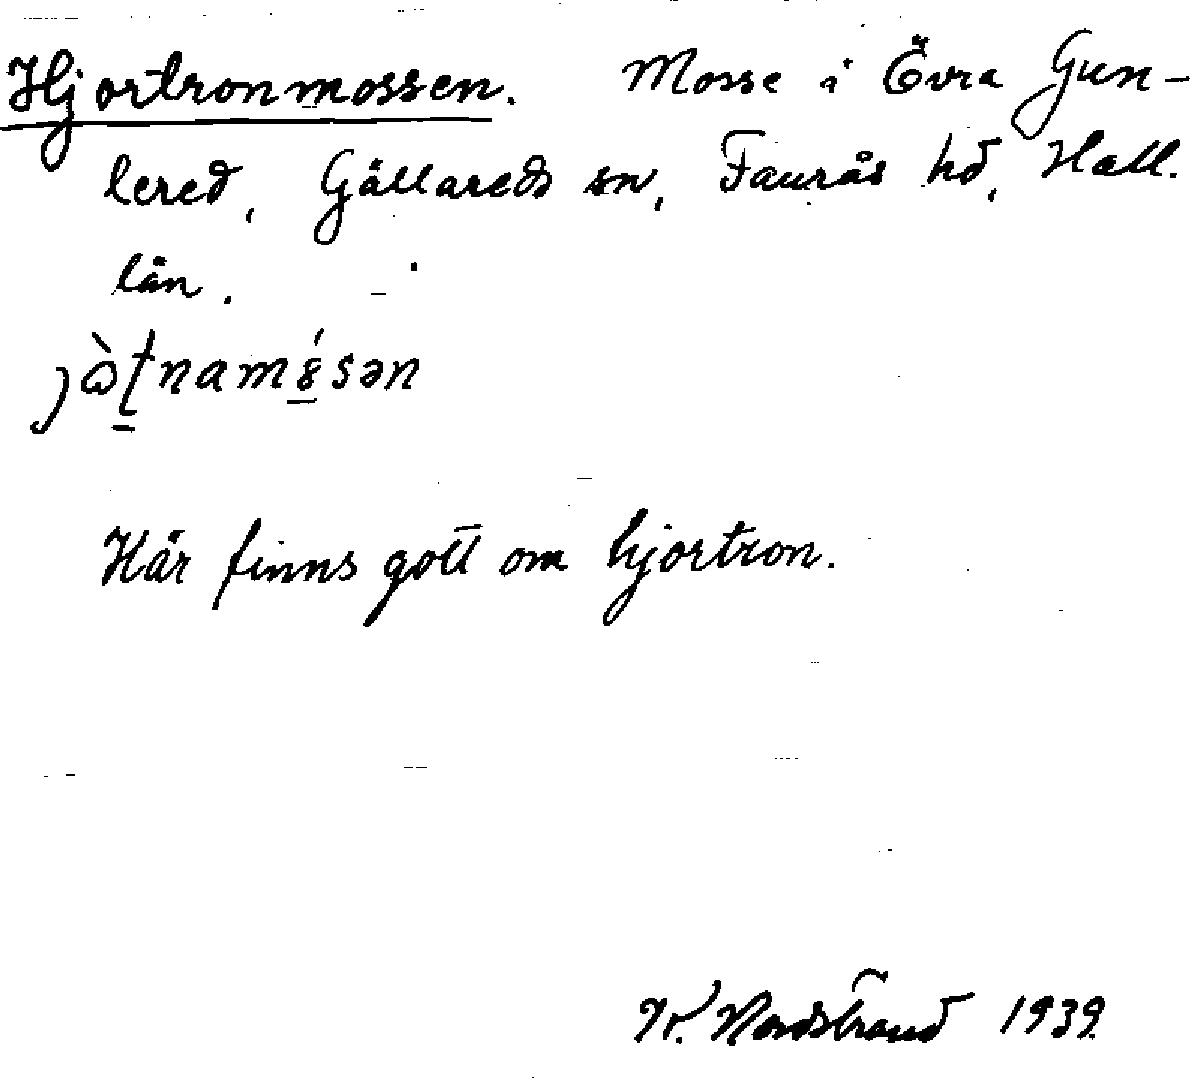 Hjortronmossen. Mosse i Övra Gun-
lered, Gällareds sn, Faurås hd, Hall.
län.
Här finns gott om hjortron.
K. Nordstrand 1939.